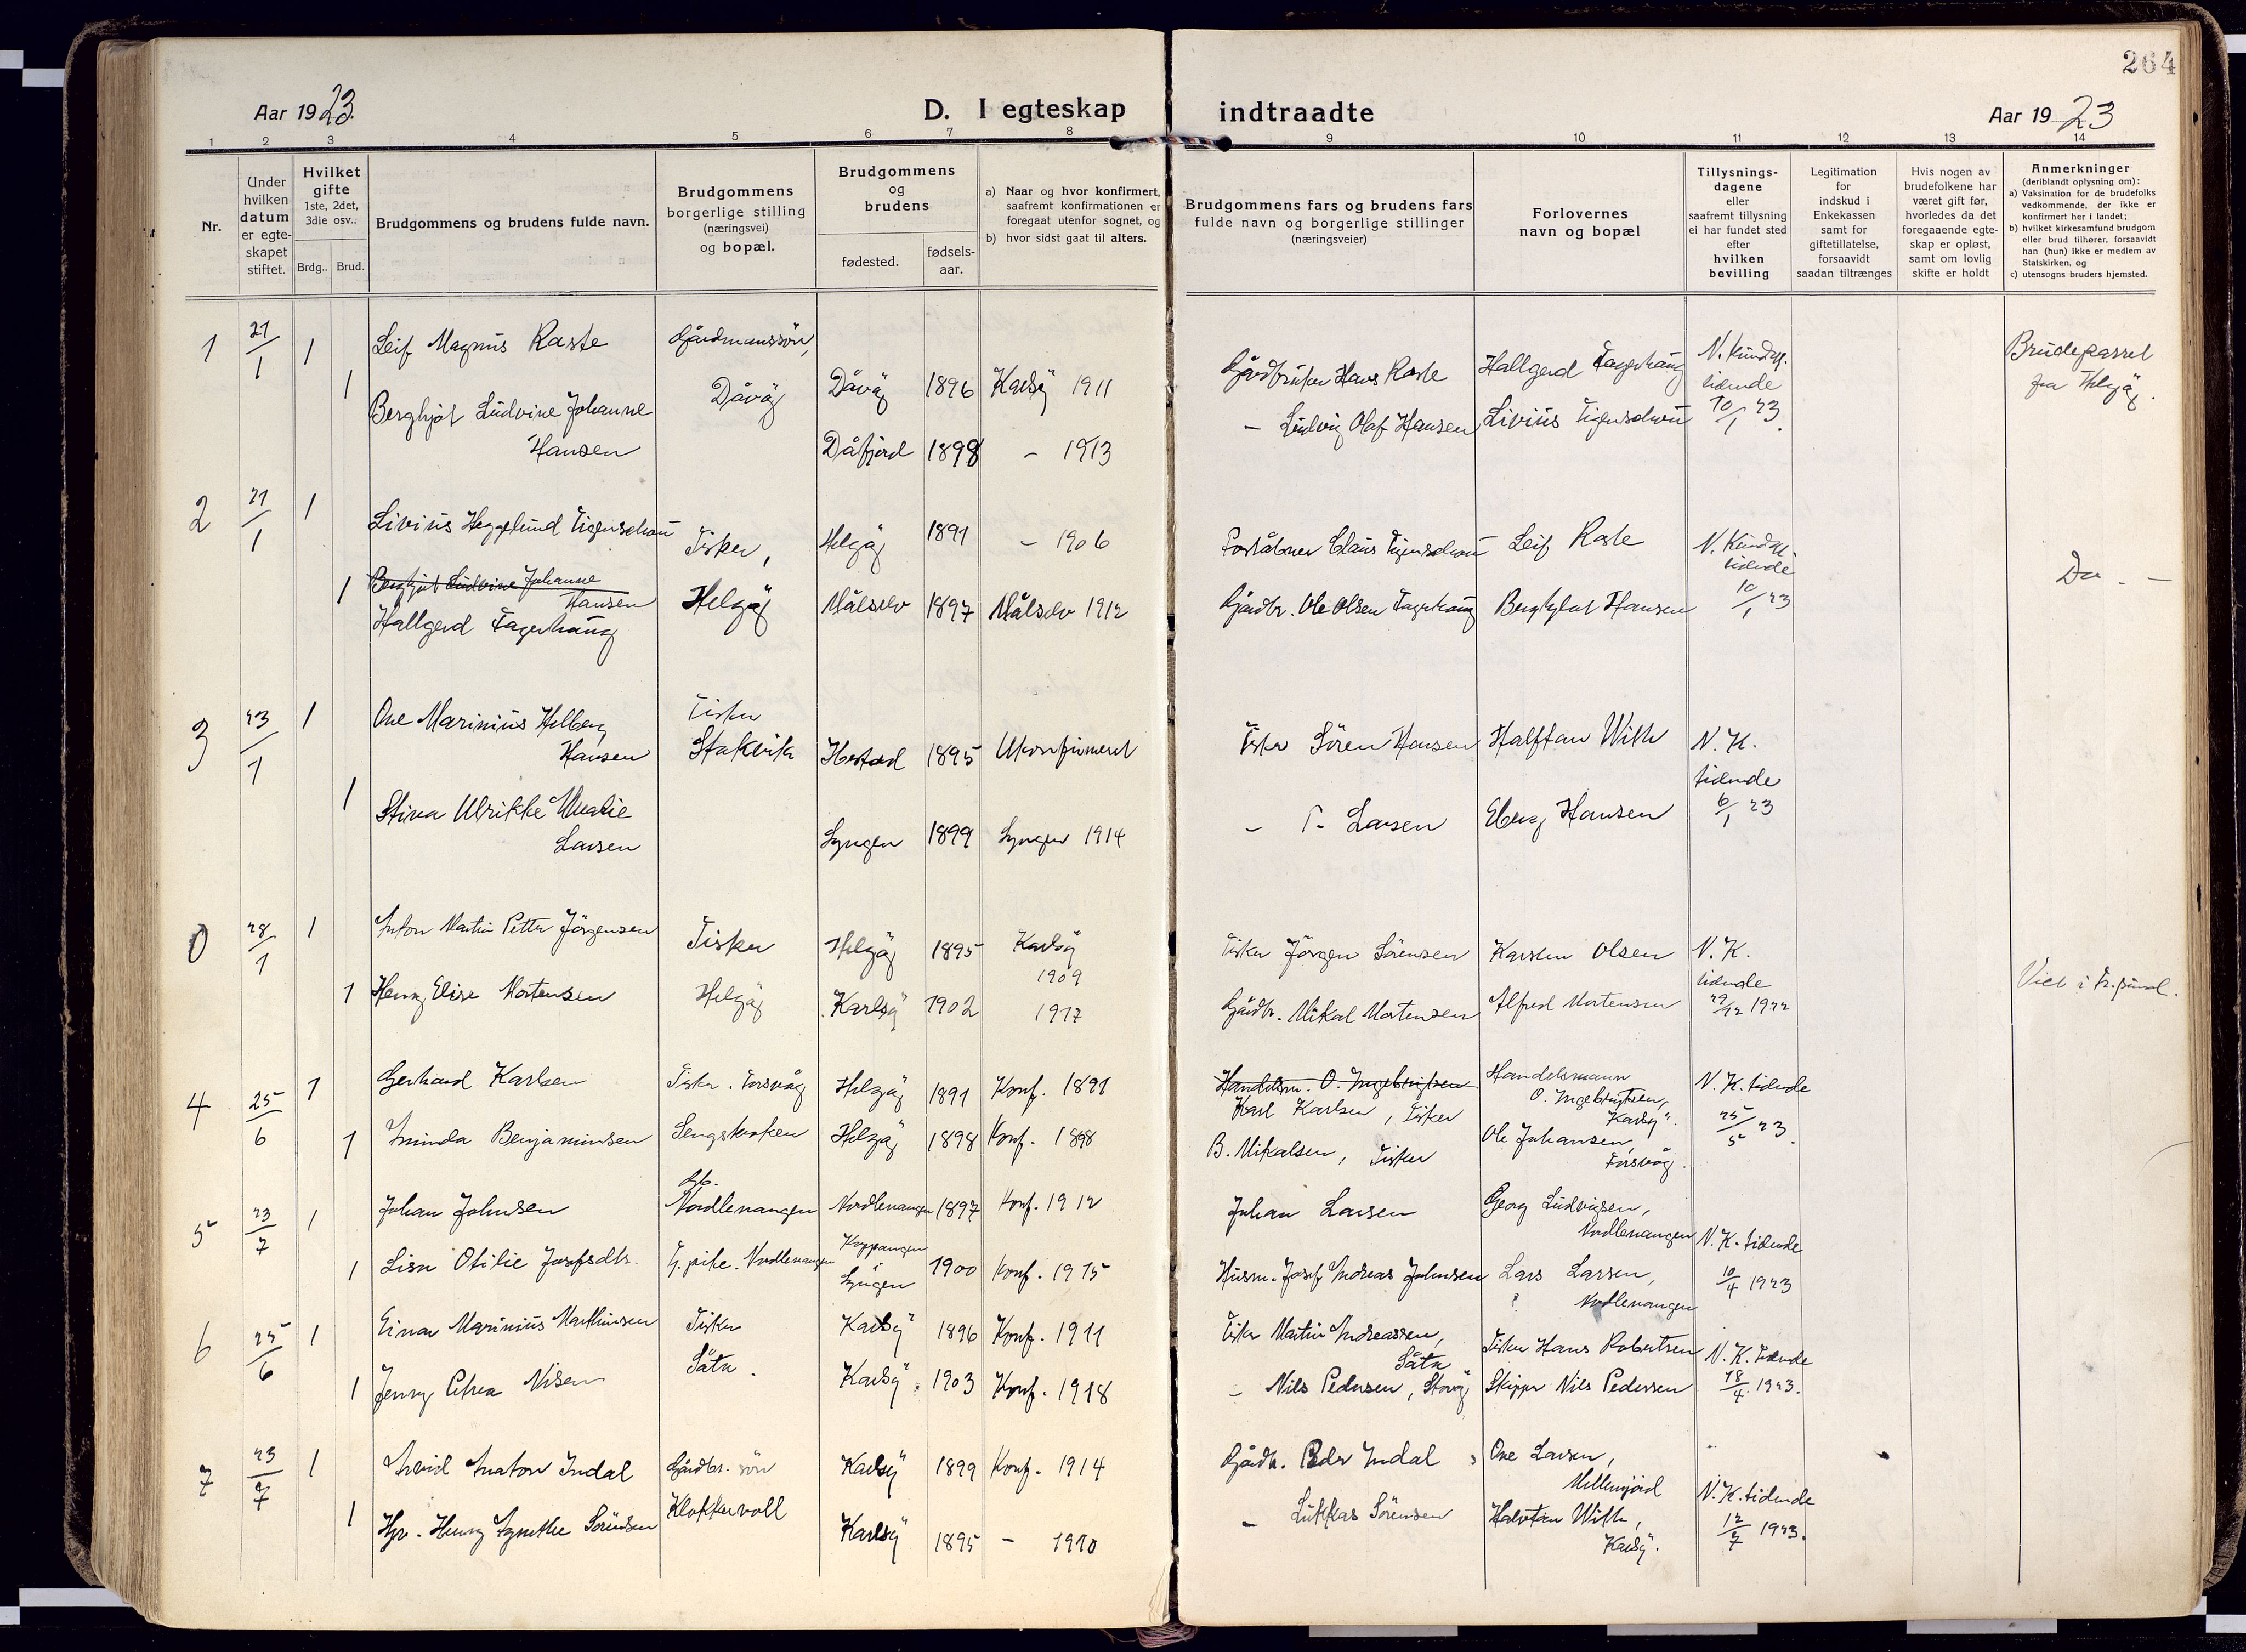 264
Aar 1923.
D. I egteskap indtraadte
Aar 1923
1 2 3 4 5 6 7 8 9 10 11 12 13 14
Nr.
Under hvilken datum er egteskapet stiftet.
Hvilket gifte 1ste, 2det, 3die osv..
Brdg.. Brud.
Brudgommens og brudens fulde navn.
Brudgommens borgerlige stilling (næringsvei) og bopæl.
Brudgommens og brudens
fødested.
fødsels-aar.
a) Naar og hvor konfirmert, saafremt konfirmationen er foregaat utenfor sognet, og
b) hvor sidst gaat til alters.
Brudgommens fars og brudens fars fulde navn og borgerlige stillinger (næringsveier)
Forlovernes navn og bopæl
Tillysnings-dagene eller saafremt tillysning ei har fundet sted efter hvilken bevilling
Legitimation for indskud i Enkekassen samt for giftetillatelse, forsaavidt saadan tiltrænges
Hvis nogen av brudefolkene har været gift før, hvorledes da det foregaaende egte-skap er opløst, samt om lovlig skifte er holdt
Anmerkninger (deriblandt oplysning om):
a) Vaksination for de brudefolks vedkommende, der ikke er konfirmert her i landet;
b) hvilket kirkesamfund brudgom eller brud tilhører, forsaavidt han (hun) ikke er medlem av Statskirken, og
c) utensogns bruders hjemsted.
1 21/1 1 Leif Magnus Raste Gårdmannssön, Dåvöy Dåvöy 1896 Karlsöy 1911 Gårdbruker Hans Raste Hallgerd Fagerhaug N. Kundgj. tidende 10/1 23. Brudeparret fra Helgöy.
1 Bergljot Ludvine Johanne Hansen Dåfjord 1898 – 1913 – Ludvig Olaf Hansen Livius Figenschou
2 21/1 1 Livius Heggelund Figenschou Fisker, Helgöy 1891 – 1906 Poståbner Claus Figenschou Leif Raste N. Kundgj. tidende 10/1 23 Do. –
1 Bergljot Ludvine Johanne Hansen
Hallgerd Fagerhaug Helgöy Målselv 1897 Målselv 1912 Gårdbr. Ole Olsen Fagerhaug Bergljot Hansen
3 23/1 1 Ove Marinius Helberg Hansen Fisker Stakvik 1895 Ukonfirmeret Fisker Sören Hansen Halfdan With N. K. tidende 6/1 23
1 Stina Ulrikke Larsen Lyngen 1899 Lyngen 1914 – Larsen Hansen
0 28/1 1 Anton Martin Petter Jörgensen Fisker Helgöy 1895 Karlsöy 1909 Fisker Jörgen Sörensen Karsten Olsen N. K. tidende 29/12 1922
1 Henny Elise Mortensen Helgöy Karlsöy 1902 1917 Gårdbr. Mikal Mortensen Alfred Mortensen
4 25/6 1 Gerhard Karlsen Fisker. Torsvåg Helgöy 1891 Konf. 1891 Handelsm. O. Ingebrigtsen
Karl Karlsen, Fisker Handelsmann O. Ingebrigtsen, Karlsöy. N. K. tidende 25/5 23.
1 Aminda Benjaminsen Lengskroken Helgöy 1898 Konf. 1898 B. Mikalsen, Fisker Ole Johansen, Torsvåg.
5 23/7 1 Johan Johnsen Gb. Nordlenangen Nordlenangen 1897 Konf. 1912 Johan Larsen Georg Ludvigsen, Nordlenangen N. K. tidende 10/4 1923
1 Lisa Otilie Josefsdtr. T. pike. Nordlenangen Koppangen Lyngen 1900 Konf. 1915 Husm. Josef Andreas Johnsen Lars Larsen, Nordlenangen
6 25/6 1 Einar Marinius Marthinsen Fisker Såta. Karlsöy 1896 Konf. 1911 Fisker Martin Andreassen, Såta Fisker Hans Robertsen N. K. Tidende 18/4. 1923.
1 Jenny Petrea Nilsen Karlsöy. 1903 Konf. 1918 – Nils Pedersen, Skipper Nils Pedersen
7 23/7 1 Arvid Anaton Indal Gårdbr. sön Klokkervoll Karlsöy 1899 Konf. 1914 Gårdb. Peder Indal Ove Larsen, Mellemjord N. K. tidende 12/7 1923.
1 Hjr. Henny Agnethe Sörensen Karlsöy 1895 – 1910 – Lukkas Sörensen Halvdan With, Karlsöy.